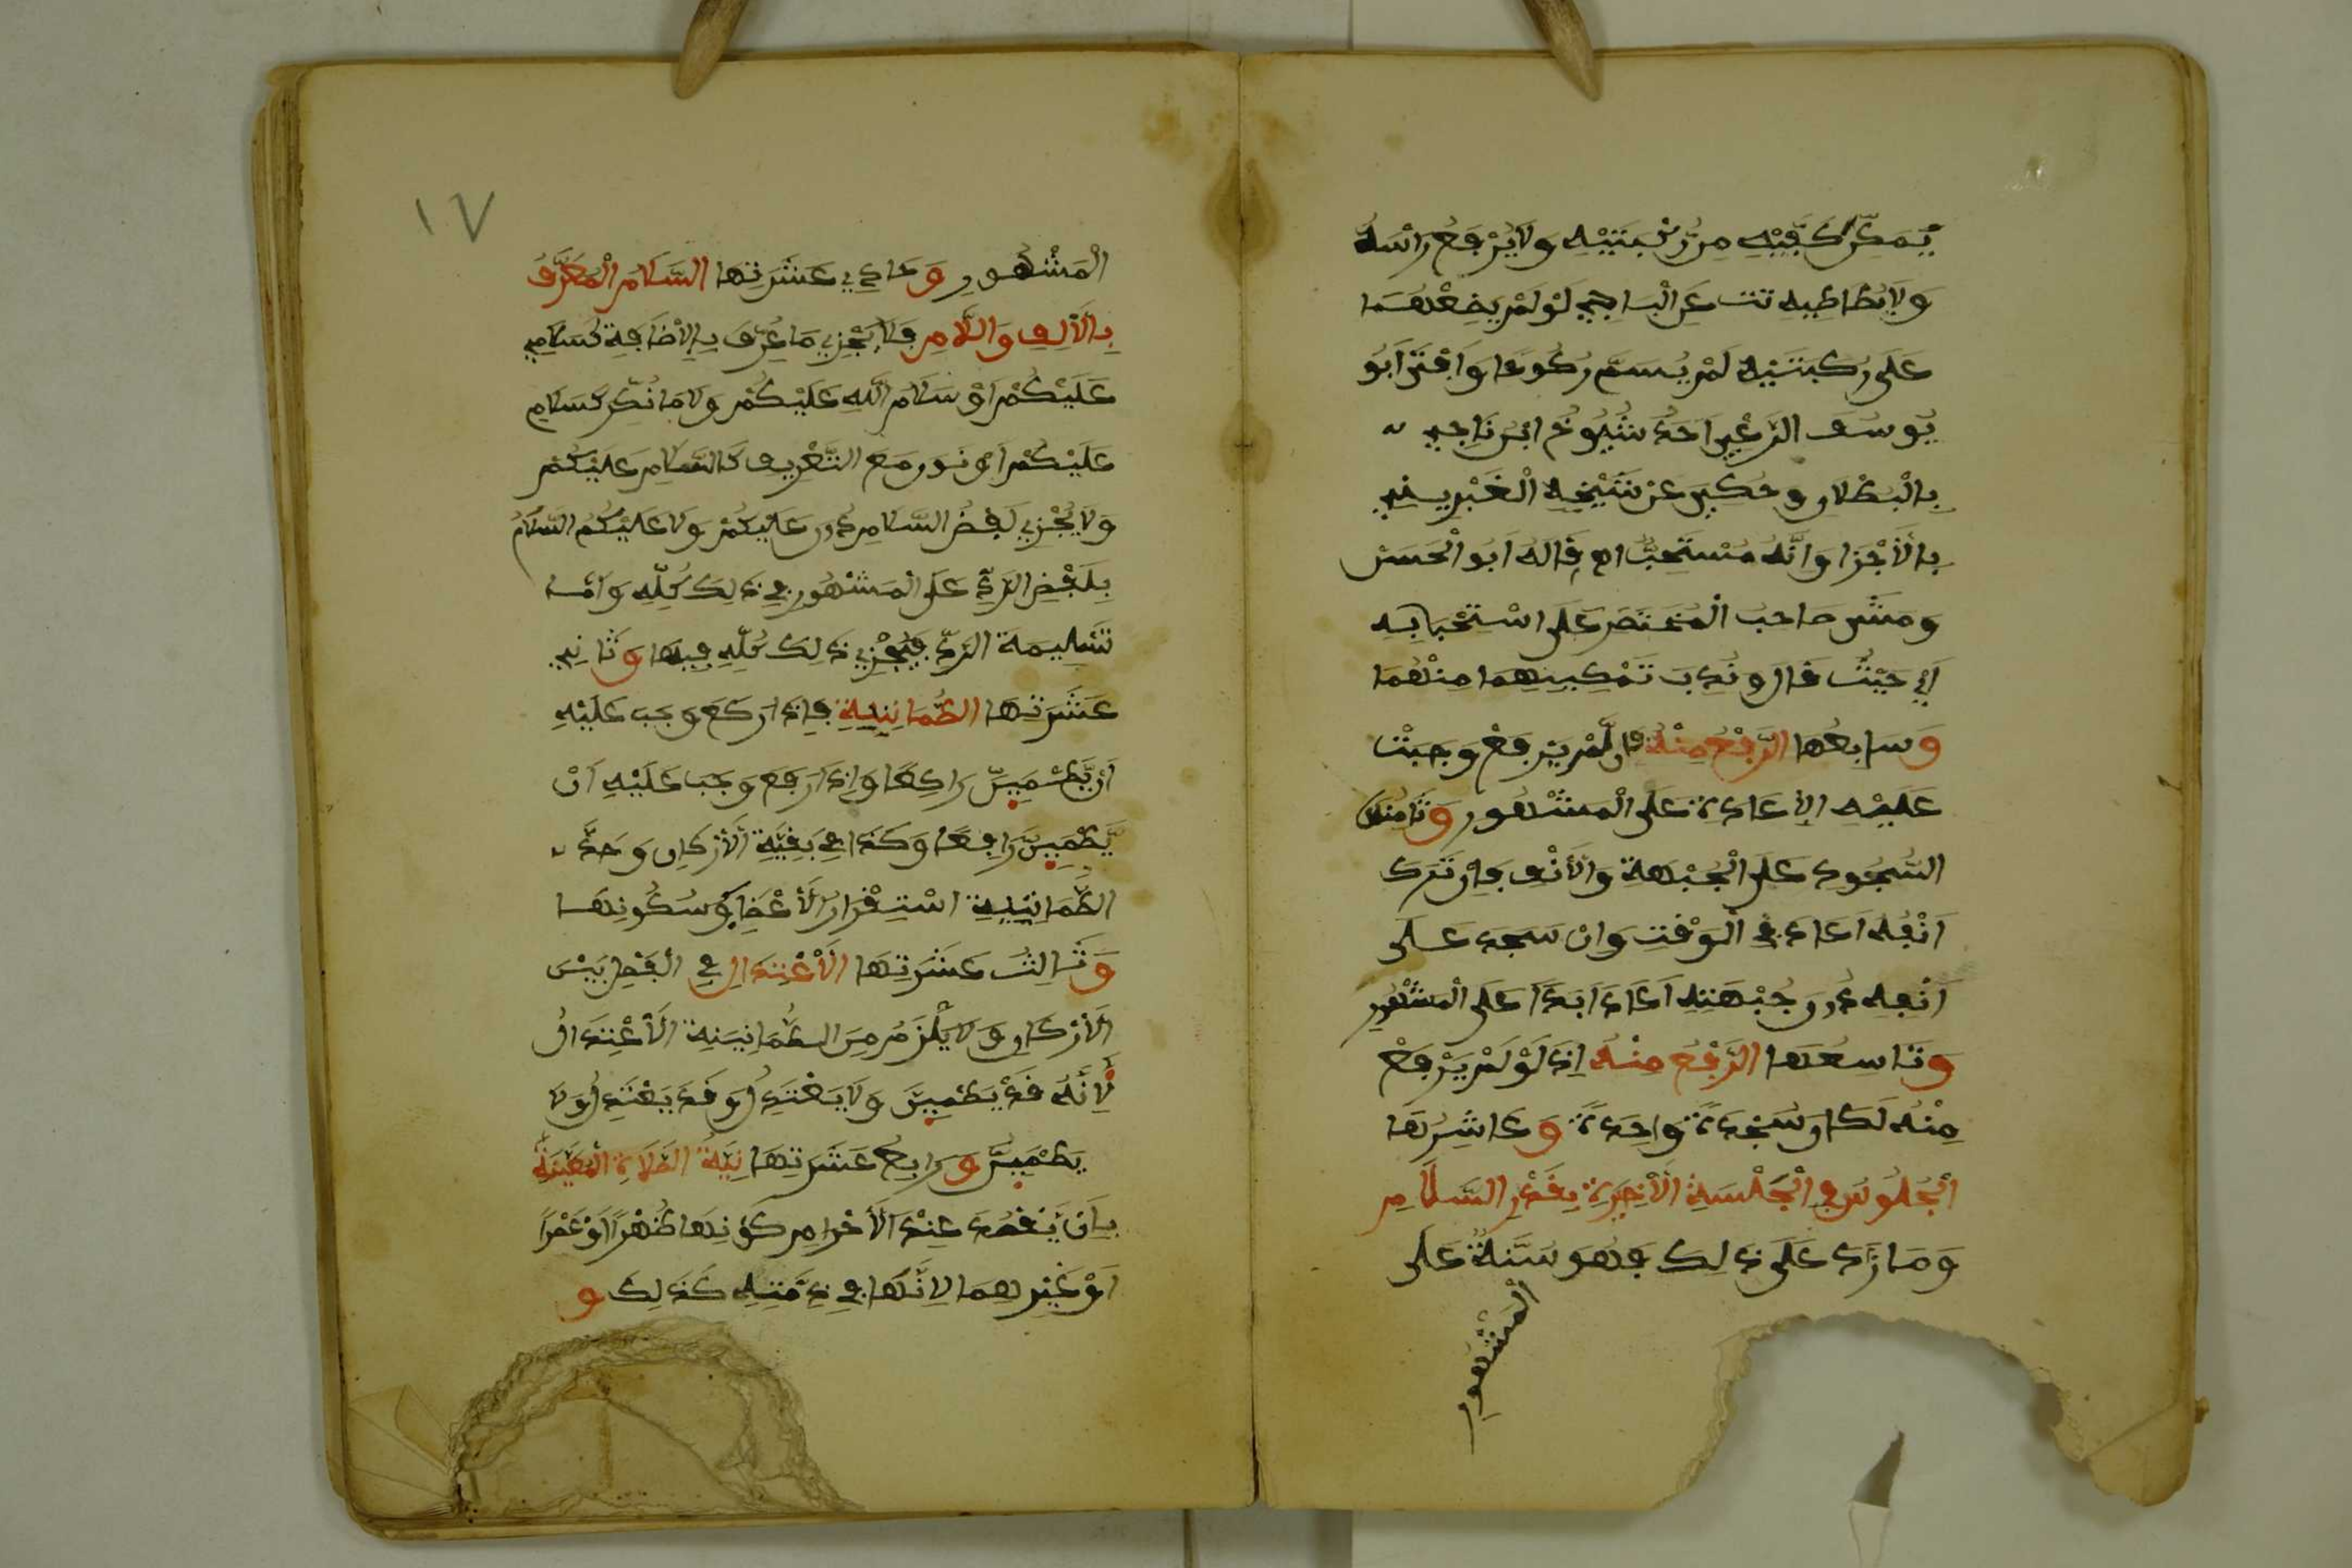 يُمَكِّن كَفَّيْهِ مِن رُّكْبَتَيْهِ وَلَا يَرْفَعُ رَأْسَهُ
وَلَا يُطَاطِيهِ تت عَنِ الْبَاجِي لَوْ لَمْ يَضَعْهُمَا
عَلَى رُكْبَتَيْهِ لَمْ يُسَمَّ رُكُوعًا وَأَفْتَى أَبُو
يُوسُف الزَّغْبِي أَحَدُ شُيُوخِ ابْن نَاجِي
بِالْبُطْلَانِ وَحُكِيَ عَنْ شَيْخِهِ الْغُبْرِينِي
بِالْأَجْزَا وَأَنَّهُ مُسْتَحَبٌّ اه قَالَهُ أَبُو الْحَسَن
وَمَشَى صَاحِبُ الْمُخْتَصَرِ عَلَى اسْتِحْبَابِهِ
أَيْ حَيْثُ قَالَ وَنُدِبَ تَمْكِينُهُمَا مِنْهُمَا
وَسَابِعُهَا الرَّفْعُ مِنْهُ فَإِن لَّمْ يَرْفَعْ وَجَبَتْ
عَلَيْهِ الْإِعَادَةُ عَلَى الْمَشْهُورِ وَثَامِنُهَا
السُّجُودُ عَلَى الْجَبْهَةِ وَالْأَنْفِ فَإِن تَرَكَ
أَنْفَهُ أَعَادَ فِي الْوَقْتِ وَإِن سَجَدَ عَلَى
أَنْفِهِ دُونَ جَبْهَتِهِ أَعَادَ أَبَدًا عَلَى الْمَشْهُورِ
وَتَاسِعُهَا الرَّفْعُ مِنْهُ إِذْ لَوْ لَمْ يَرْفَعْ
مِنْهُ لَكَانَ سَجْدَةً وَاحِدَةً وَعَاشِرُهَا
الْجُلُوسُ فِي الْجَلْسَةِ الْأَخِيرَةِ بِقَدْرِ السَّلَامِ
وَمَا زَادَ عَلَى ذَلِكَ فَهُوَ سُنَّةٌ عَلَى
الْمَشْهُورِ
١٧
الْمَشْهُورِ وَحَادِي عَشَرَتِهَا السَّلَامُ الْمُعَرَّفُ
بِالْأَلِفِ وَاللَّامِ فَلَا يُجْزِي مَا عُرِّفَ بِالْإِضَافَةِ كَسَلَامِي
عَلَيْكُمْ أَوْ سَلَامُ اللَّهِ عَلَيْكُمْ وَلَا مَا نُكِّرَ كَسَلَامٍ
عَلَيْكُمْ أَوْ نُوِّنَ مَعَ التَّعْرِيفِ كَالسَّلَامِ عَلَيْكُمْ
وَلَا يُجْزِي لَفْظُ السَّلَامِ دُونَ عَلَيْكُمْ وَلَا عَلَيْكُمُ السَّلَامُ
بِلَفْظِ الرَّدِّ عَلَى الْمَشْهُورِ فِي ذَلِكَ كُلِّهِ وَأَمَّا
تَسْلِيمَةُ الرَّدِّ فَيُجْزِي ذَلِكَ كُلُّهُ فِيهَا وَثَانِي
عَشَرَتِهَا الطُّمَانِينَةُ فَإِذَا رَكَعَ وَجَبَ عَلَيْهِ
أَن يَّطْمَيِنَّ رَاكِعًا وَإِذَا رَفَعَ وَجَبَ عَلَيْهِ أَنْ
يَّطْمَيِنَّ رَافِعًا وَكَذَا فِي بَقِيَّةِ الْأَرْكَانِ وَحَدُّ
الطُّمَانِينَةِ اسْتِقْرَارُ الْأَعْضَاءِ وَسُكُونُهَا
وَثَالِثُ عَشَرَتِهَا الْأَعْتِدَالُ فِي الْفَصْلِ بَيْنَ
الْأَرْكَانِ وَلَا يَلْزَمُ مِنَ الطُّمَانِينَةِ الْأَعْتِدَالُ
لِأَنَّهُ قَدْ يَطْمَيِنَّ وَلَا يَعْتَدِلُ وَقَدْ يَعْتَدِلُ وَلَا
يَطْمَيِنَّ وَرَابِعُ عَشَرَتِهَا نِيَّةُ الصَّلَاةِ الْمُعَيَّنَةِ
بِأَن يَّقْصِدَ عِنْدَ الْأَحْرَامِ كَوْنِهَا ظُهْرًا أَوْ عَصْرًا
أَوْ غَيْرِهِمَا لِأَنَّهَا فِي ذِمَّتِهِ كَذَلِكَ وَ